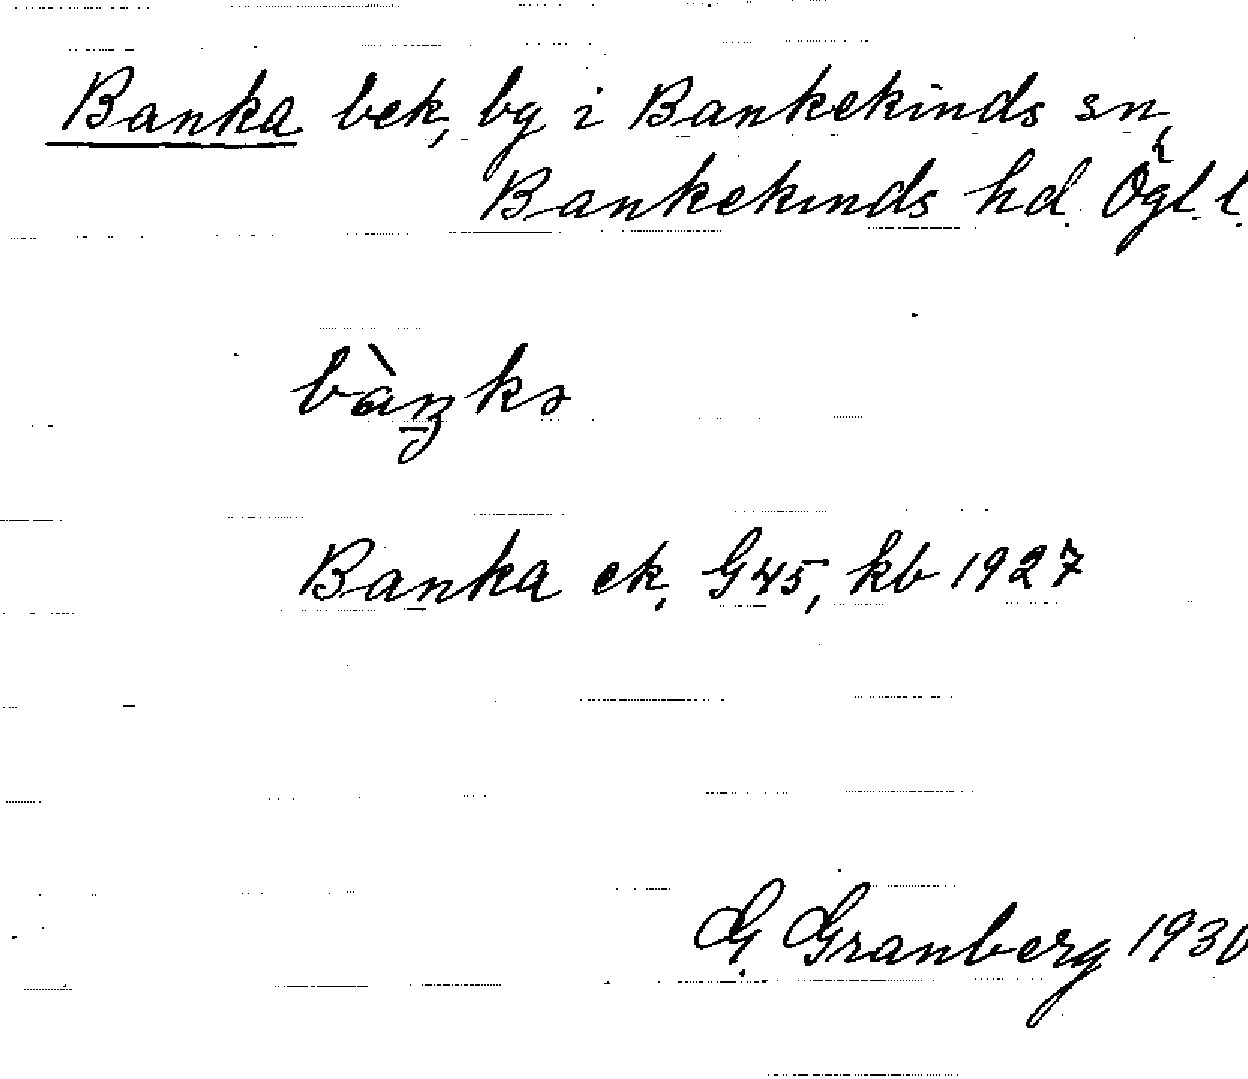 Banka bek, by i Bankekinds sn,
Bankekinds hd. Ögl. l.
bàŋkə
Banka ek, G 45, kb 1927
G. Granberg 1930